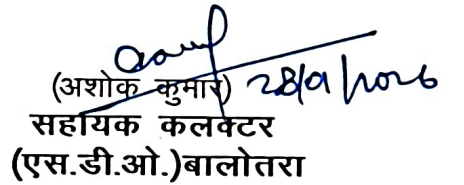 (अशोक कुमार) 28/01/2026
सहायक कलक्टर
(एस.डी.ओ.)बालोतरा